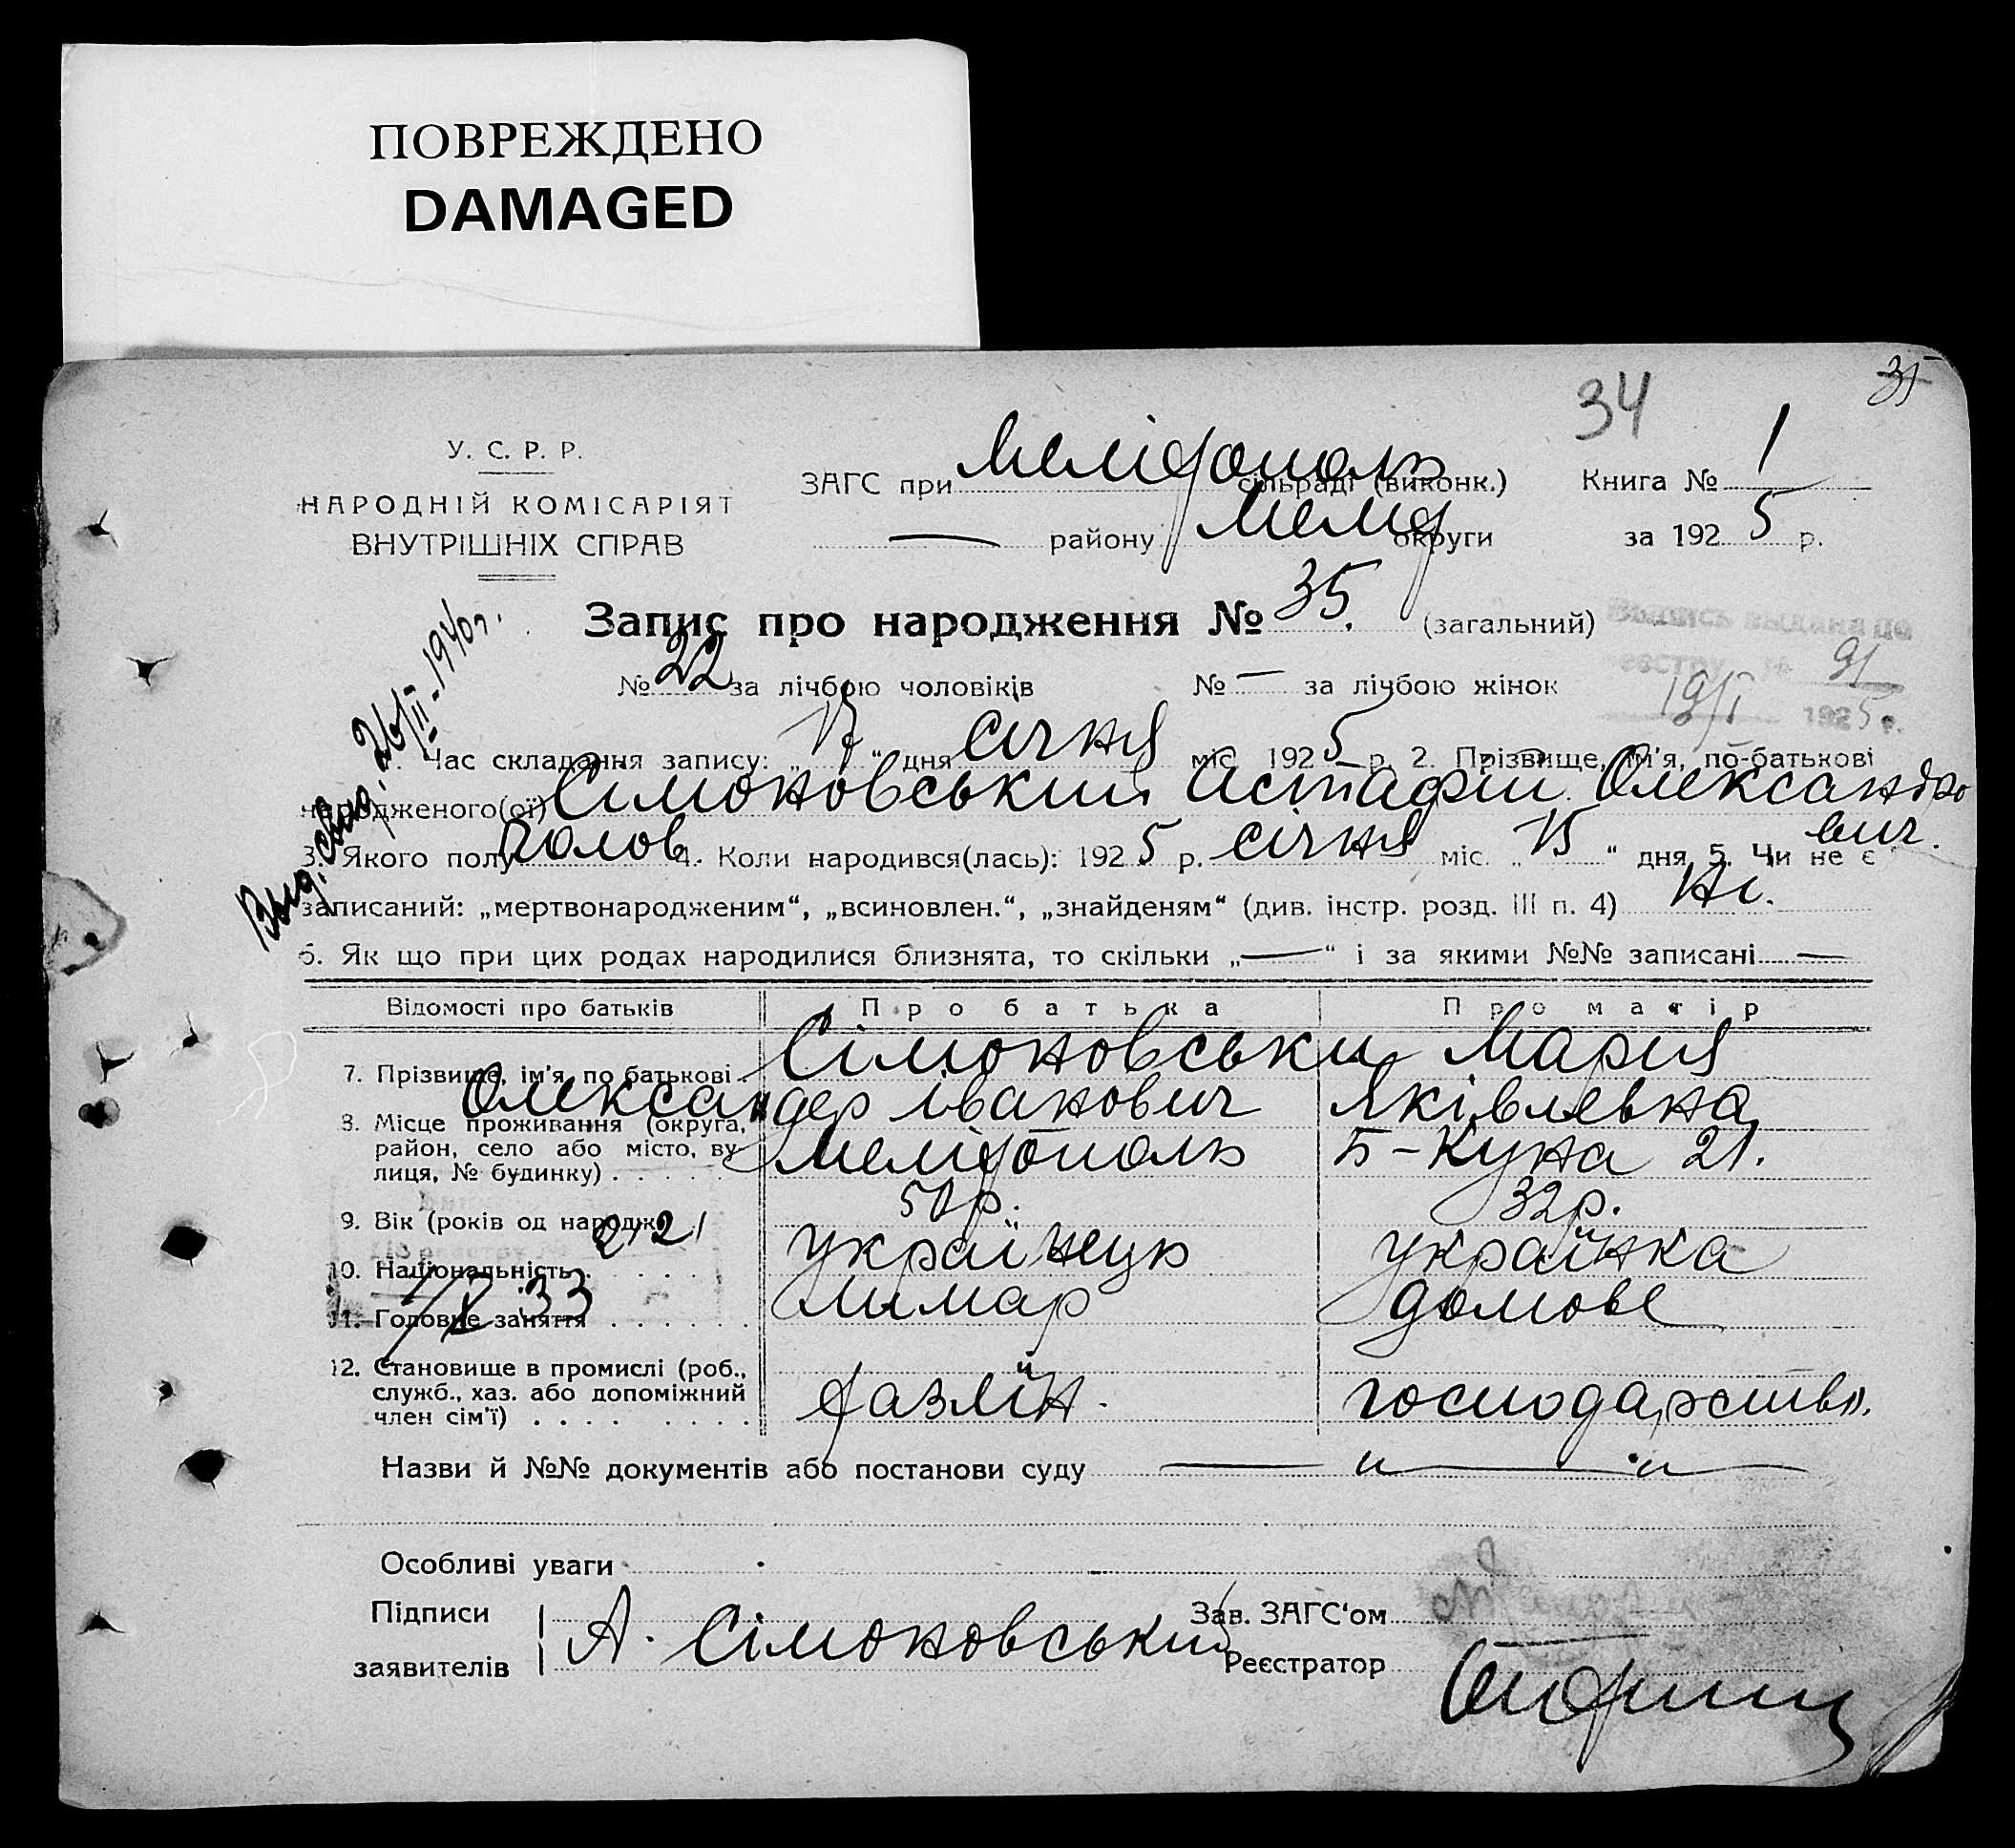 ПОВРЕЖДЕНО
DAMAGED
34 35
У. С. Р. Р.
НАРОДНІЙ КОМІСАРІЯТ
ВНУТРІШНІХ СПРАВ
ЗАГС при Мелітополь сільраді (виконк.) Книга № 1
— району Меліт округи за 1925 р.
Запис про народження № 35. (загальний)
№ 22 за лічбою чоловіків № — за лічбою жінок
Выпись выдана по
реестру № 91
19/I 1925 г.
Выд. свид. 26/II-1940 г.
1. Час складання запису: „17“ дня січня міс. 1925 р. 2. Прізвище, ім'я, по-батькові
народженого(ої) Сімоновський Астафій Олександро
вич.
3. Якого полу полов. 4. Коли народився(лась): 1925 р. січня міс. „15“ дня 5. Чи не є
записаний: „мертвонародженим“, „всиновлен.“, „знайденям“ (див. інстр. розд. III п. 4) Ні.
6. Як що при цих родах народилися близнята, то скільки „—“ і за якими №№ записані —
Відомості про батьків Про батька Про матір
7. Прізвище, ім'я, по батькові Сімоновськи Мария
Олександер Іванович Яківлевна
8. Місце проживання (округа,
район, село або місто, ву-
лиця, № будинку) Мелітополь Б-Куна 21.
9. Вік (років од народж. р. 32р.
2121
10. Національність Українець Українка
33
11. Головне заняття Лимар домове
12. Становище в промислі (роб.,
служб., хаз. або допоміжний
член сім'ї) господарство.
Назви й №№ документів або постанови суду — „ — „ —
Особливі уваги
Підписи
заявителів А. Сімоновський
Зав. ЗАГС'ом
Реєстратор